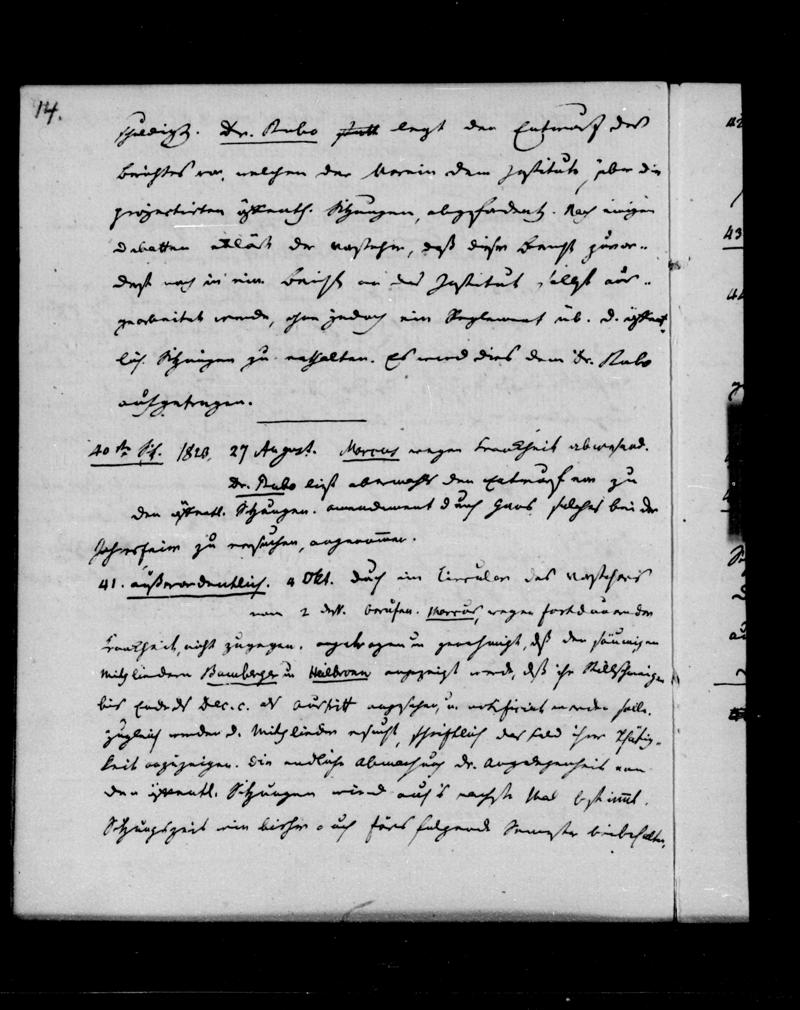 14.
schuldigt. Dr. Rubo legt den Entwurf des
Berichtes vor, welchen der Verein dem Institute, über die
projectirten öffentl. Sitzungen, abgefordert. Nach einigen
Debatten erklärt der Vorsteher, daß dieser Bericht zuvor-
derst noch in ein. Bericht an das Institut selbst aus-
gearbeitet werde, ohne jedoch ein Reglement üb. d. öffent-
lich. Sitzungen zu enthalten. Es wird dies dem Dr. Rubo
aufgetragen.
40ste Sitz. 1820, 27 August. Marcus wegen Krankheit abwesend.
Dr. Rubo liest abermahls den Entwurf vor zu
den öffentl. Sitzungen. Amendement durch Gans, solches bei der
Jahresfeier zu versuchen, angenommen.
41. außerordentlich. 4 Okt. durch ein Circular des Vorstehers
vom 2 dess. berufen. Marcus, wegen fortdauernder
Krankheit, nicht zugegen. angetragen u genehmigt, daß den säumigen
Mitgliedern Bamberger u Heilbronn angezeigt werde, daß ihr Stillschweigen
bis Ende des Dec. c. als Austritt angesehen, u. notificirt werden solle.
Zugleich werden d. Mitglieder ersucht, schriftlich das Feld ihrer Thätig-
keit anzuzeigen. Die endliche Abmachung dr. Angelegenheit von
den öffentl. Sitzungen wird auf's nächste Mal bestimmt.
Sitzungszeit wie bisher auch fürs folgende Semester beibehalten.
43